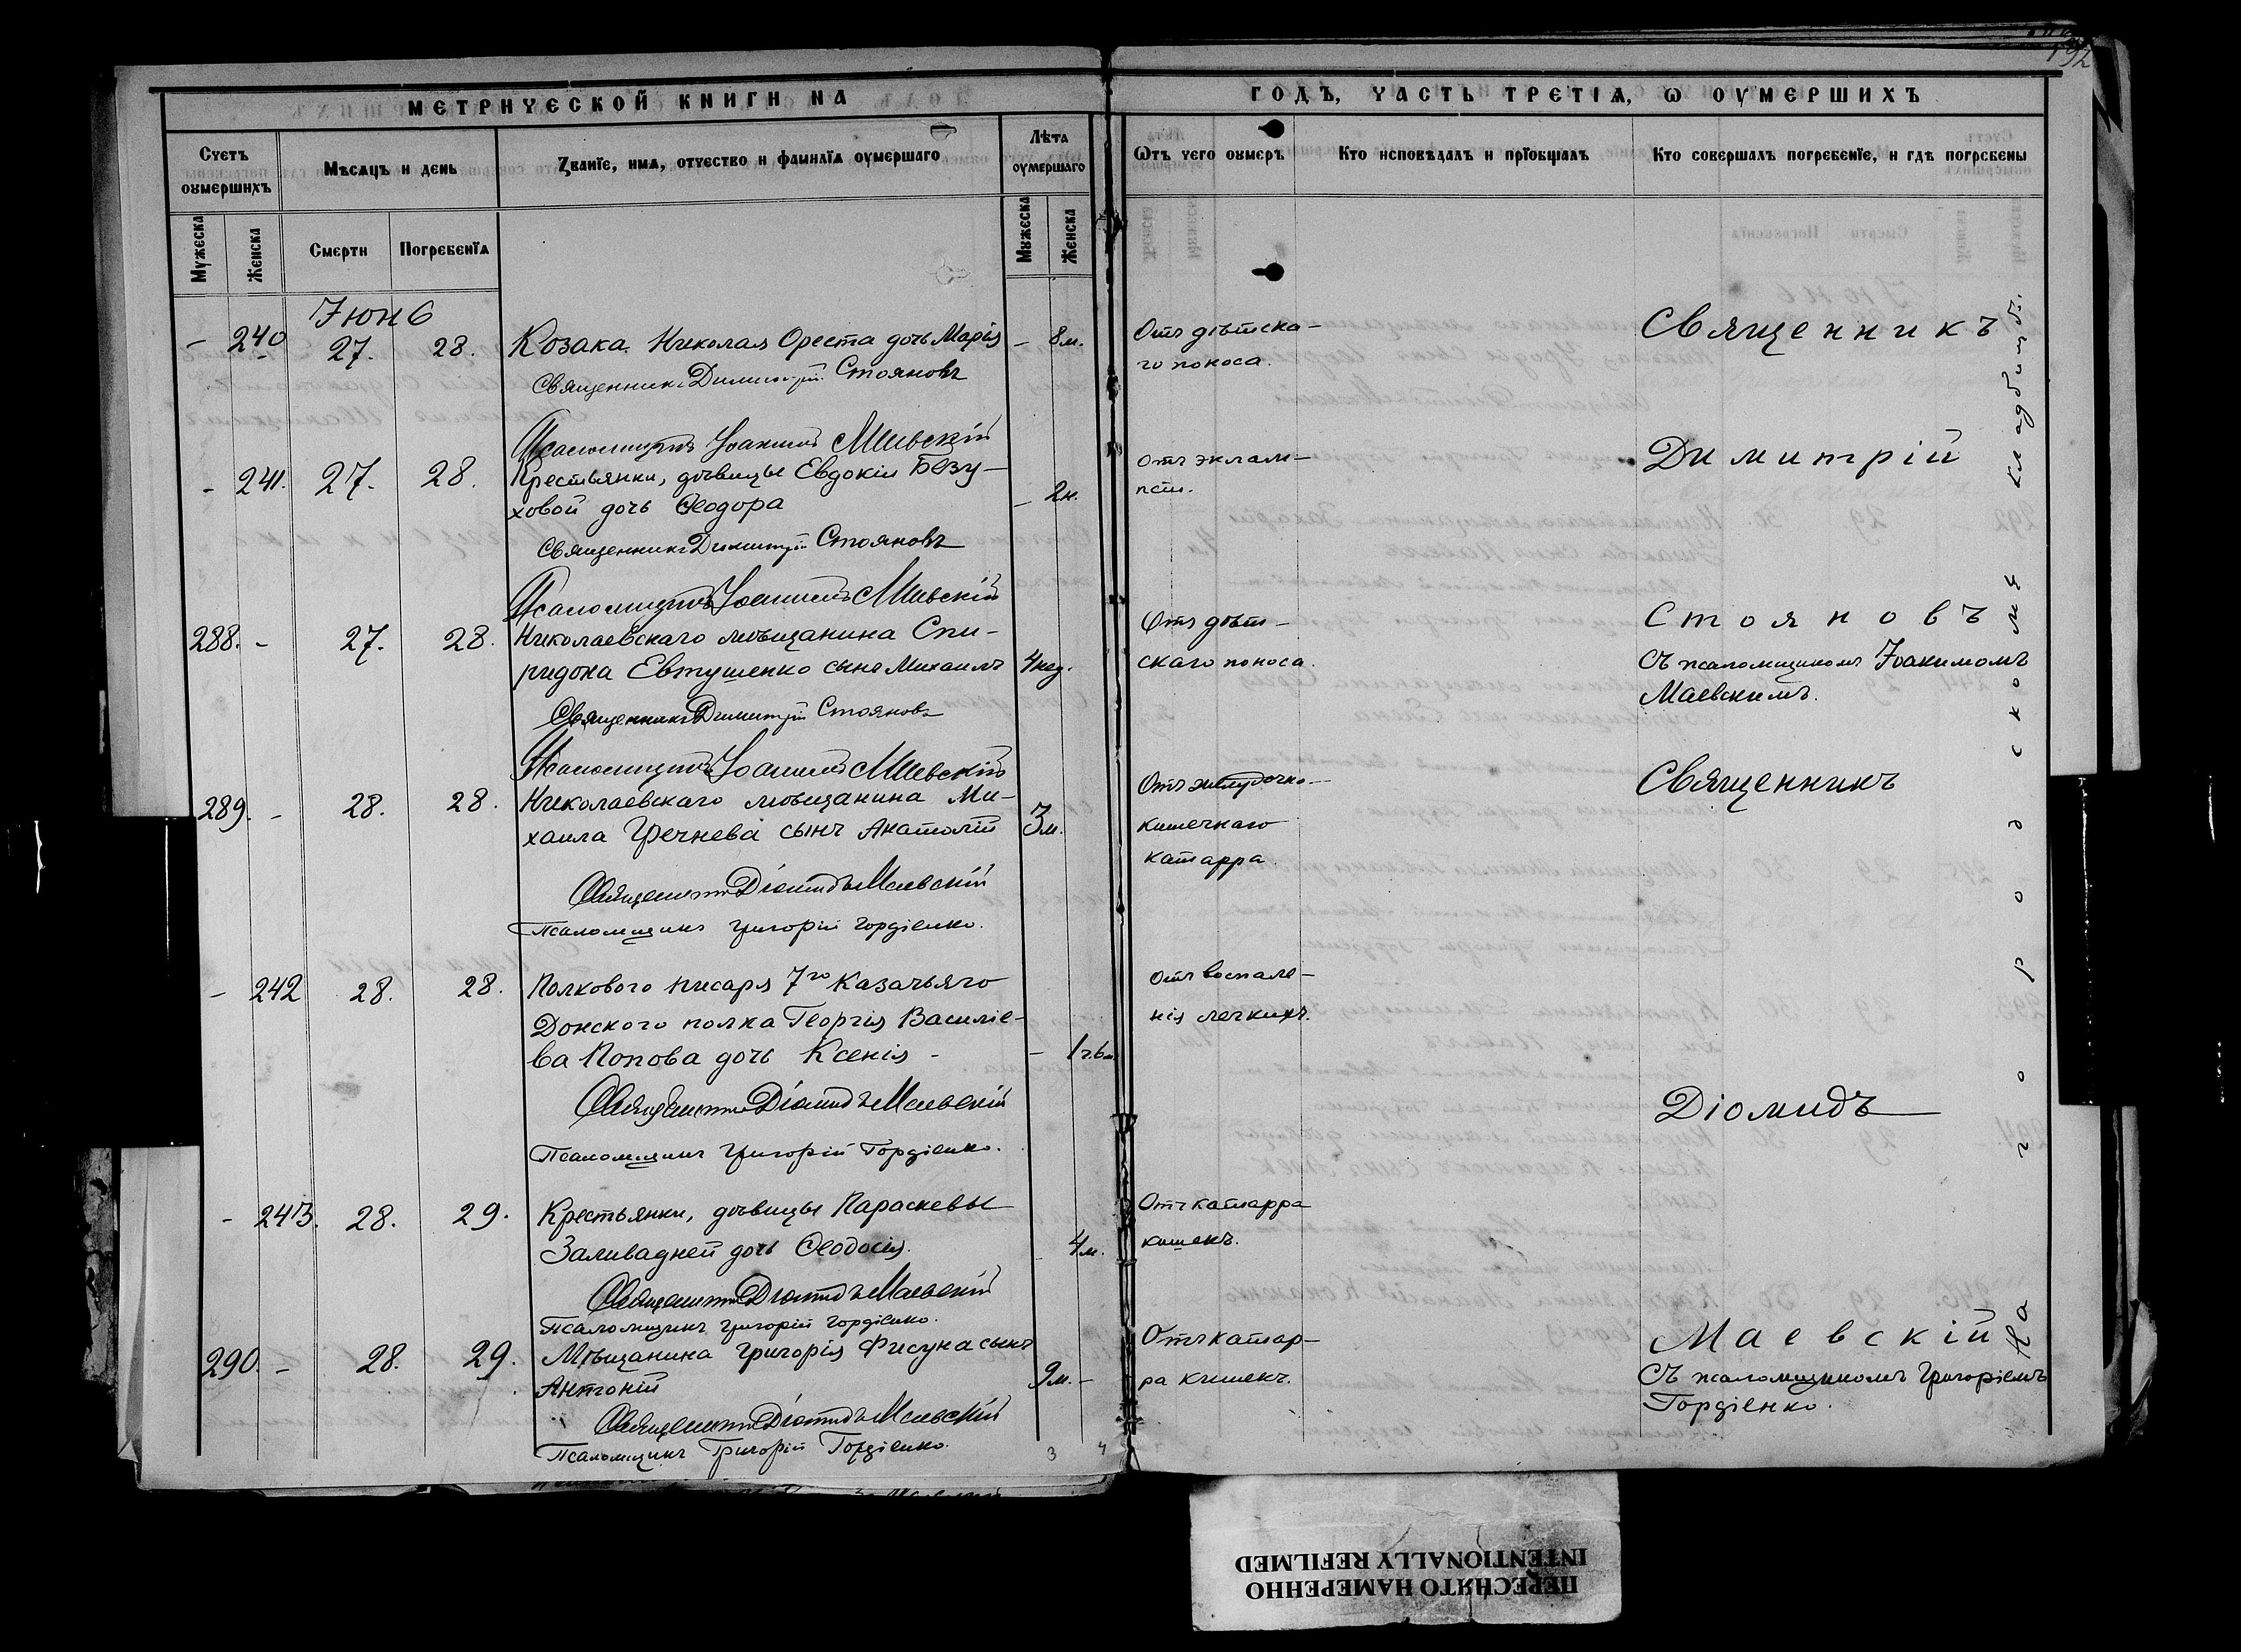 192
МЕТРИЧЕСКОЙ КНИГИ НА
ГОДЪ, ЧАСТЬ ТРЕТІѦ, Ѡ ОУМЕРШИХЪ
Счетъ оумершихъ
Мѣсѧцъ и день
Званїе, имѧ, отчество и фамилїѧ оумершаго
Лѣта оумершаго
Ѿтъ чего оумеръ
Кто исповѣдалъ и прїобщалъ
Кто совершалъ погребенїе, и гдѣ погребены
Мужеска
Женска
Смерти
Погребенїѧ
Мужеска
Женска
Іюнь
- 240 27. 28. Козака Николая Ореста дочь Марія - 8 м.
Священникъ Димитрій Стояновъ
Отъ дѣтска-
го поноса.
Священникъ
Псаломщикъ Іоакимъ Маевскій
- 241. 27. 28. Крестьянки, дѣвицы Евдокіи Безу-
ховой дочь Ѳеодора - 2 н.
Священникъ Димитрій Стояновъ
Отъ эклам-
псіи.
Димитрій
Псаломщикъ Іоакимъ Маевскій
288. - 27. 28. Николаевскаго мѣщанина Спи-
ридона Евтушенко сынъ Михаилъ 4 нед.
Священникъ Димитрій Стояновъ
Отъ дѣт-
скаго поноса.
Стояновъ
Съ псаломщикомъ Іоакимомъ
Маевскимъ.
Псаломщикъ Іоакимъ Маевскій
289. - 28. 28. Николаевскаго мѣщанина Ми-
хаила Гречнева сынъ Анатолій 3 м.
Священникъ Діомидъ Маевскій
Псаломщикъ Григорій Гордіенко.
Отъ желудочно-
кишечнаго
катарра.
Священникъ
- 242 28. 28. Полкового писаря 7го Казачьяго
Донского полка Георгія Василіе-
ва Попова дочь Ксенія - - 1 г. 6 м.
Священникъ Діомидъ Маевскій
Псаломщикъ Григорій Гордіенко.
Отъ воспале-
нія легкихъ.
Діомидъ
- 243. 28. 29. Крестьянки, дѣвицы Параскевы
Заливадней дочь Ѳеодосія. 4 м.
Священникъ Діомидъ Маевскій
Псаломщикъ Григорій Гордіенко.
Отъ катарра
кишекъ.
290. - 28. 29. Мѣщанина Григорія Фисуна сынъ
Антоній 9 м. -
Священникъ Діомидъ Маевскій
Псаломщикъ Григорій Гордіенко.
Отъ катар-
ра кишекъ.
Маевскій
Съ псаломщикомъ Григоріемъ
Гордіенко.
На городскомъ кладбищѣ.
3 4
ПЕРЕСНЯТО НАМЕРЕННО
INTENTIONALLY REFILMED